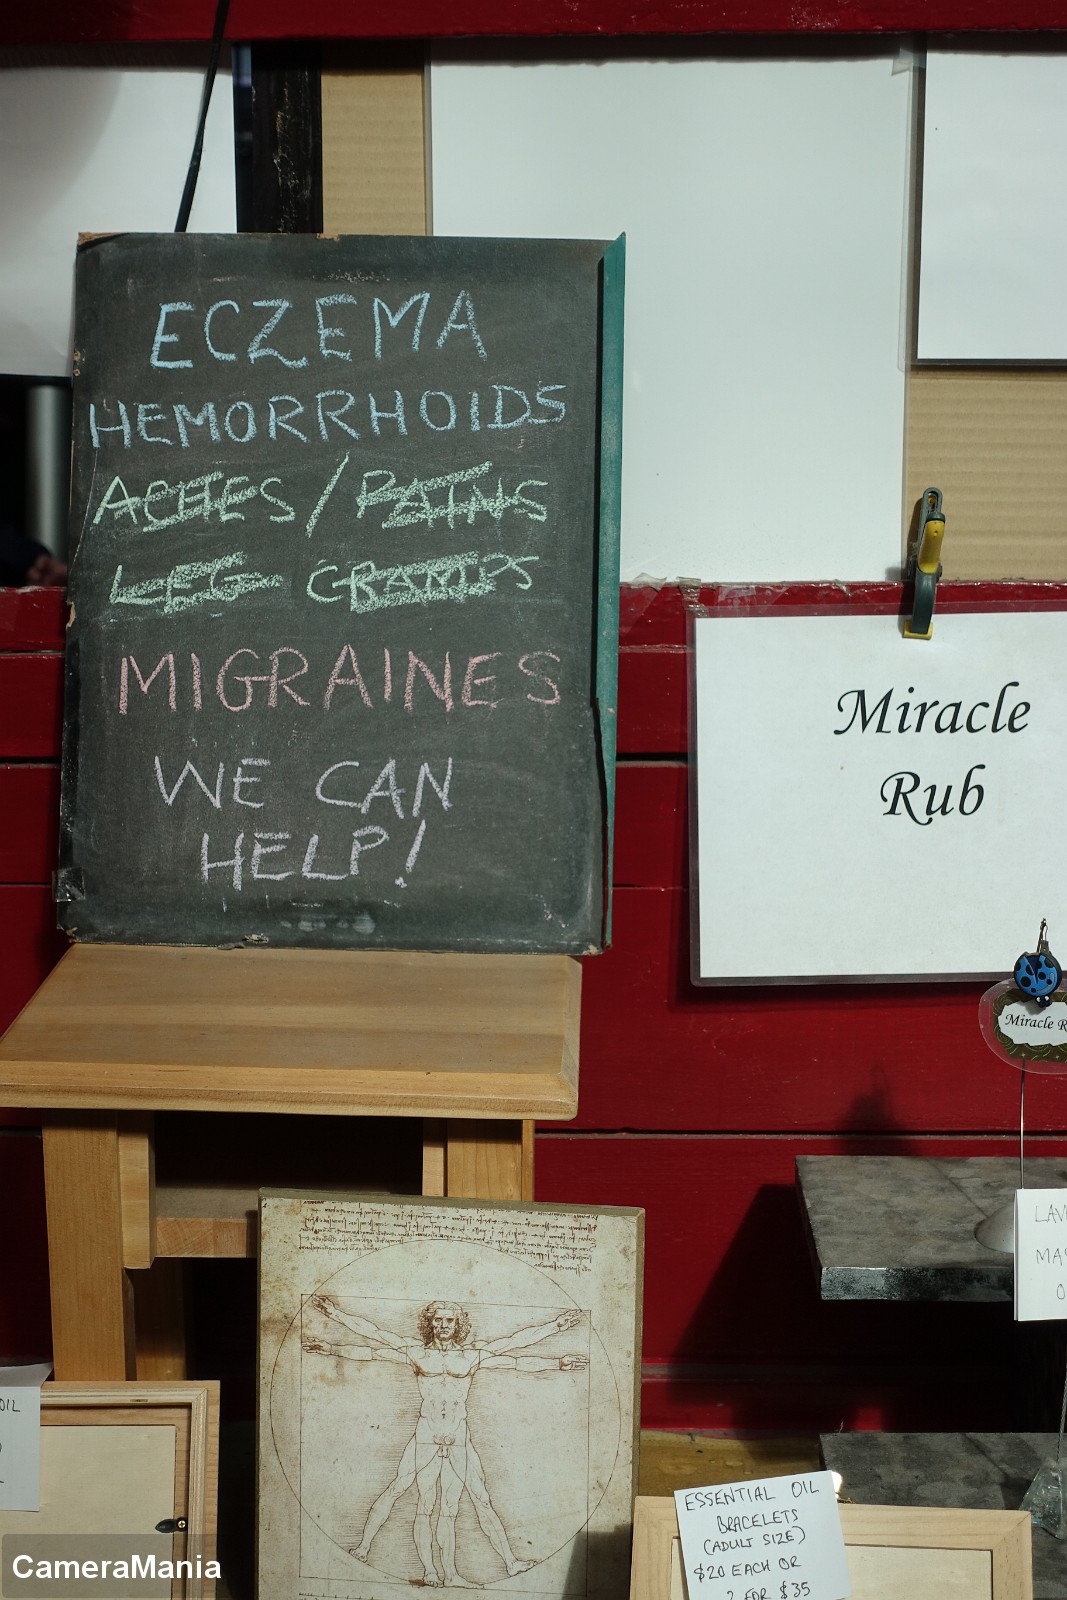 ECZEMA
HEMORRHOIDS
ACHES / PAINS
LEG CRAMPS
MIGRAINES
WE CAN
HELP!
Miracle
Rub
Miracle R
LAV
MAS
O
OIL
ESSENTIAL OIL
BRACELETS
(ADULT SIZE)
$20 EACH OR
2 FOR $35
CameraMania